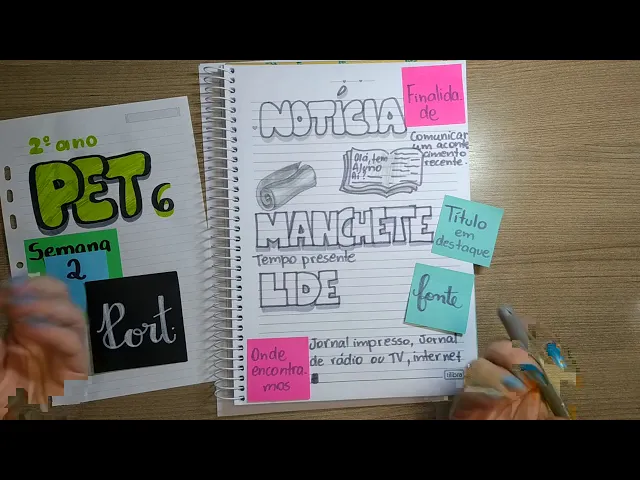 2º ano
PET 6
Semana
2
Port.
NOTÍCIA
Finalida
de
Comunicar
um aconte
cimento
recente.
Olá, tem
Alguno
Aí!
MANCHETE
Título
em
destaque
Tempo presente
LIDE
fonte
Onde
encontra.
mos
Jornal impresso, Jornal
de rádio ou TV, internet